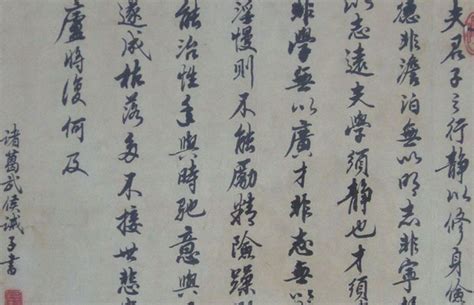 夫君子之行静以修身儉
德非澹泊無以明志非寧
以志遠夫學須静也才須
非學無以廣才非志無
淫慢則不能勵精險躁
能冶性年與時馳意與
遂成枯落多不接世悲
廬將復何及
諸葛武侯誡子書